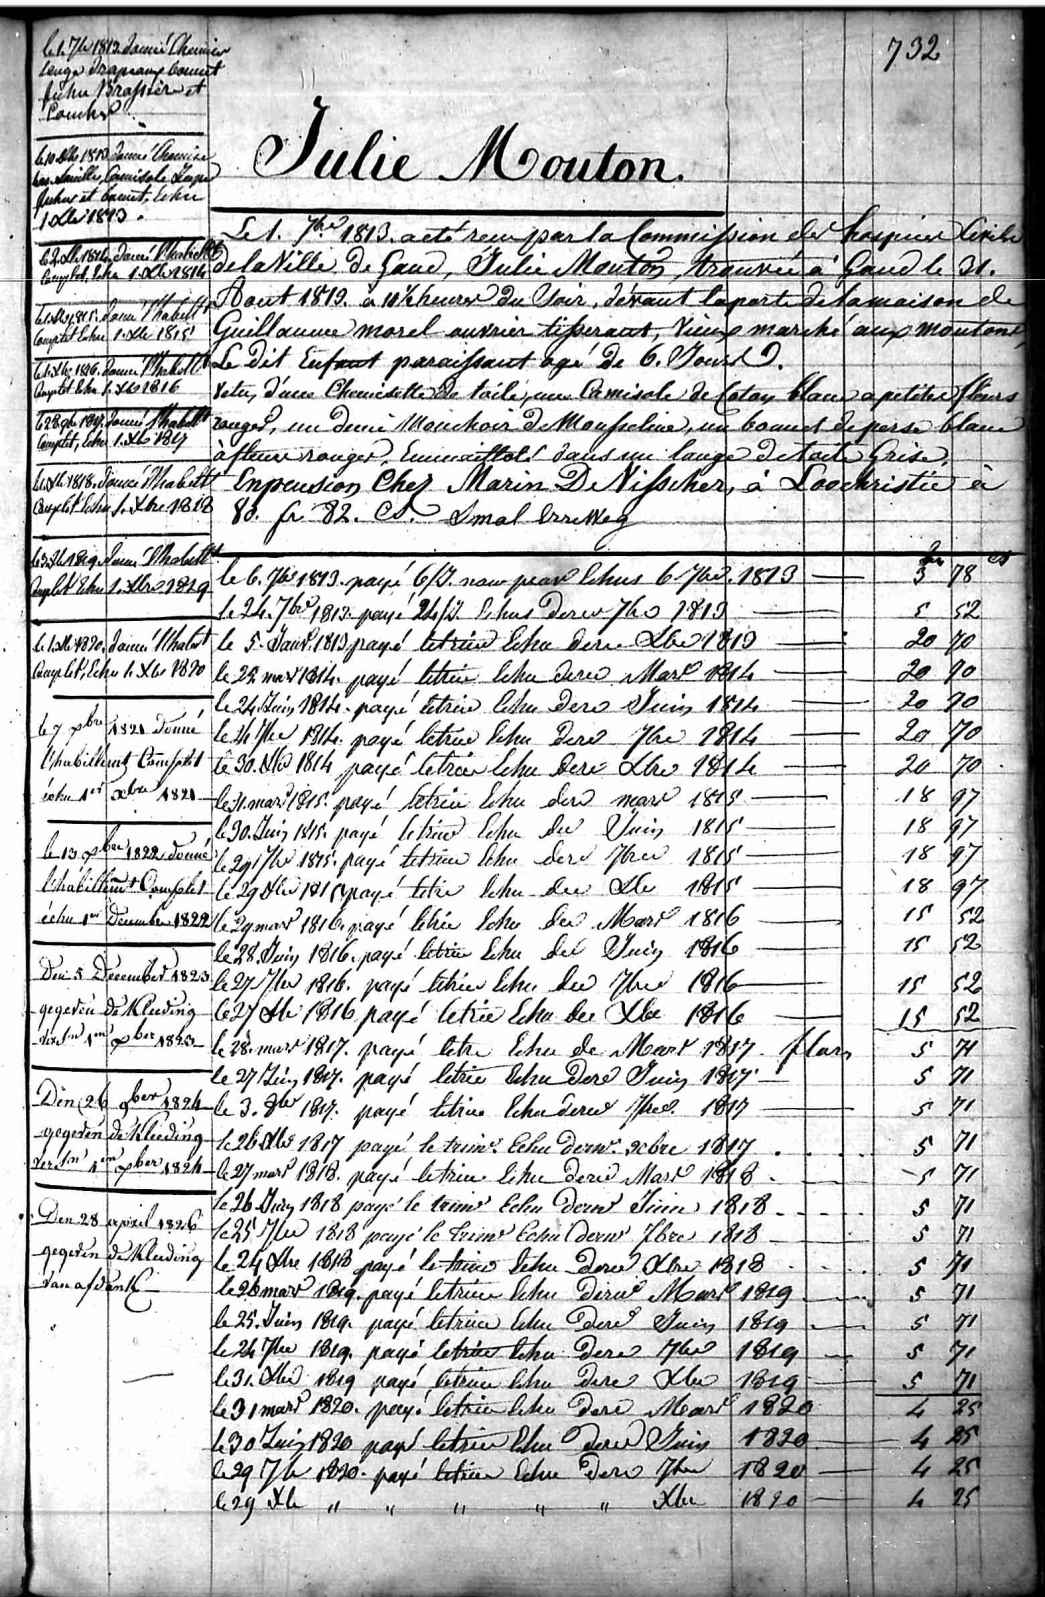 732
le 1. 7bre 1813 donné Chemise
Lange drapeaux bonnet
fichu Brassière et
Couche
le 10 Xbre 1813 donné Chemise
Camisole Jupe
fichu et bonnet, Echu
1 Xbre 1813.
le 2. Xbre 1814, donné l'habillt
Complet, Echu 1. Xbre 1814
1815. donné l'habillt
Complet Echu 1. Xbre 1815
le 1. Xbre 1816. donné l'habillt
Complet Echu 1. Xbre 1816
le 28 9bre 1817. donné l'habillt
Complet, Echu 1. Xbre 1817
1818. donné l'habillt
Complet Echu 1. Xbre 1818
le 3. Xbre 1819. donné l'habillt
Complet Echu 1. Xbre 1819
le 1. Xbre 1820. donné l'habillt
Complet, Echu 1. Xbre 1820
le 7 xbre 1821 donné
l'habillemt Complet
échu 1er xbre 1821
le 13 xbre 1822 donné
l'habillemt Complet
échu 1er Décembre 1822
Den 5 December 1823
gegeven de Kleeding
1en xber 1823
Den 26 9ber 1824
gegeven de Kleeding
1en xber 1824
Den 28 april 1826
gegeven de Kleeding
van afdank
Julie Mouton.
Le 1. 7bre 1813. a été reçu par la Commission des hospices Civils
de la Ville de Gand, Julie Mouton, trouvée à Gand le 31.
Aout 1813. à 10½ heures du Soir, devant la porte de la maison de
Guillaume morel ouvrier tisserant, Vieux marché aux moutons,
Le dit Enfant paraissant agé de 6. Jours.
Vetu, d'une Chemisette de toile, une Camisole de Coton blanc a petites fleurs
rouges, un demi Mouchoir de Mousseline, un bonnet de perse blanc
à fleurs rouges, Emmaillotté dans un lange de toile Grise.
En pension Chez Marin De Visscher, à Loochristie à
80. fr. 82. Cs. Smal Erreweg
fr cs
le 6. 7bre 1813. payé 6/J. nourr pour Echus 6 7bre 1813 3 78
le 24. 7bre 1813. payé 24/J. Echus dern 7bre 1813 5 52
le 5. Janv. 1813 payé le trim Echu dern Xbre 1813 20 70
le 29. mars 1814. payé le trim Echu dern Mars 1814 20 70
le 24. Juin 1814. payé le trim Echu dern Juin 1814 20 70
le 24 7bre 1814. payé le trim Echu dern 7bre 1814 20 70
le 30. Xbre 1814 payé le trim Echu dern Xbre 1814 20 70
le 31. mars 1815. payé le trim Echu dern mars 1815 18 97
le 30. Juin 1815. payé le trim Echu der Juin 1815 18 97
le 29 7bre 1815. payé le trim Echu dern 7bre 1815 18 97
le 29 Xbre 1815 payé le trim Echu der Xbre 1815 18 97
le 29 mars 1816. payé le trim Echu der Mars 1816 15 52
le 28. Juin 1816. payé le trim Echu der Juin 1816 15 52
le 27 7bre 1816. payé le trim Echu der 7bre 1816 15 52
le 27 Xbre 1816 payé le trim Echu der Xbre 1816 15 52
le 28. mars 1817. payé le trim Echu de Mars 1817. flors 5 71
le 27 Juin 1817. payé le trim Echu dern Juin 1817 5 71
le 3. 8bre 1817. payé le trim Echu dern 7bre 1817 5 71
le 26 Xbre 1817 payé le trimr. Echu dernr. xbre 1817 5 71
le 27 mars 1818. payé le trim Echu dern Mars 1818 5 71
le 26 Juin 1818 payé le trimr Echu dernr Juin 1818 5 71
le 25 7bre 1818 payé le trimr Echu dernr 7bre 1818 5 71
le 24 Xbre 1818 payé le trim Echu dern Xbre 1818 5 71
le 26 mars 1819. payé le trim Echu dernr Mars 1819 5 71
le 25. Juin 1819. payé le trim Echu dern Juin 1819 5 71
le 24 7bre 1819. payé le trim Echu dern 7bre 1819 5 71
le 31. Xbre 1819 payé le trim Echu dern Xbre 1819 5 71
le 31 mars 1820. payé le trim Echu dern Mars 1820 4 25
le 30 Juin 1820 payé le trim Echu dern Juin 1820 4 25
le 29 7bre 1820. payé le trim Echu dern 7bre 1820 4 25
le 29 Xbre " " " " " Xbre 1820 4 25